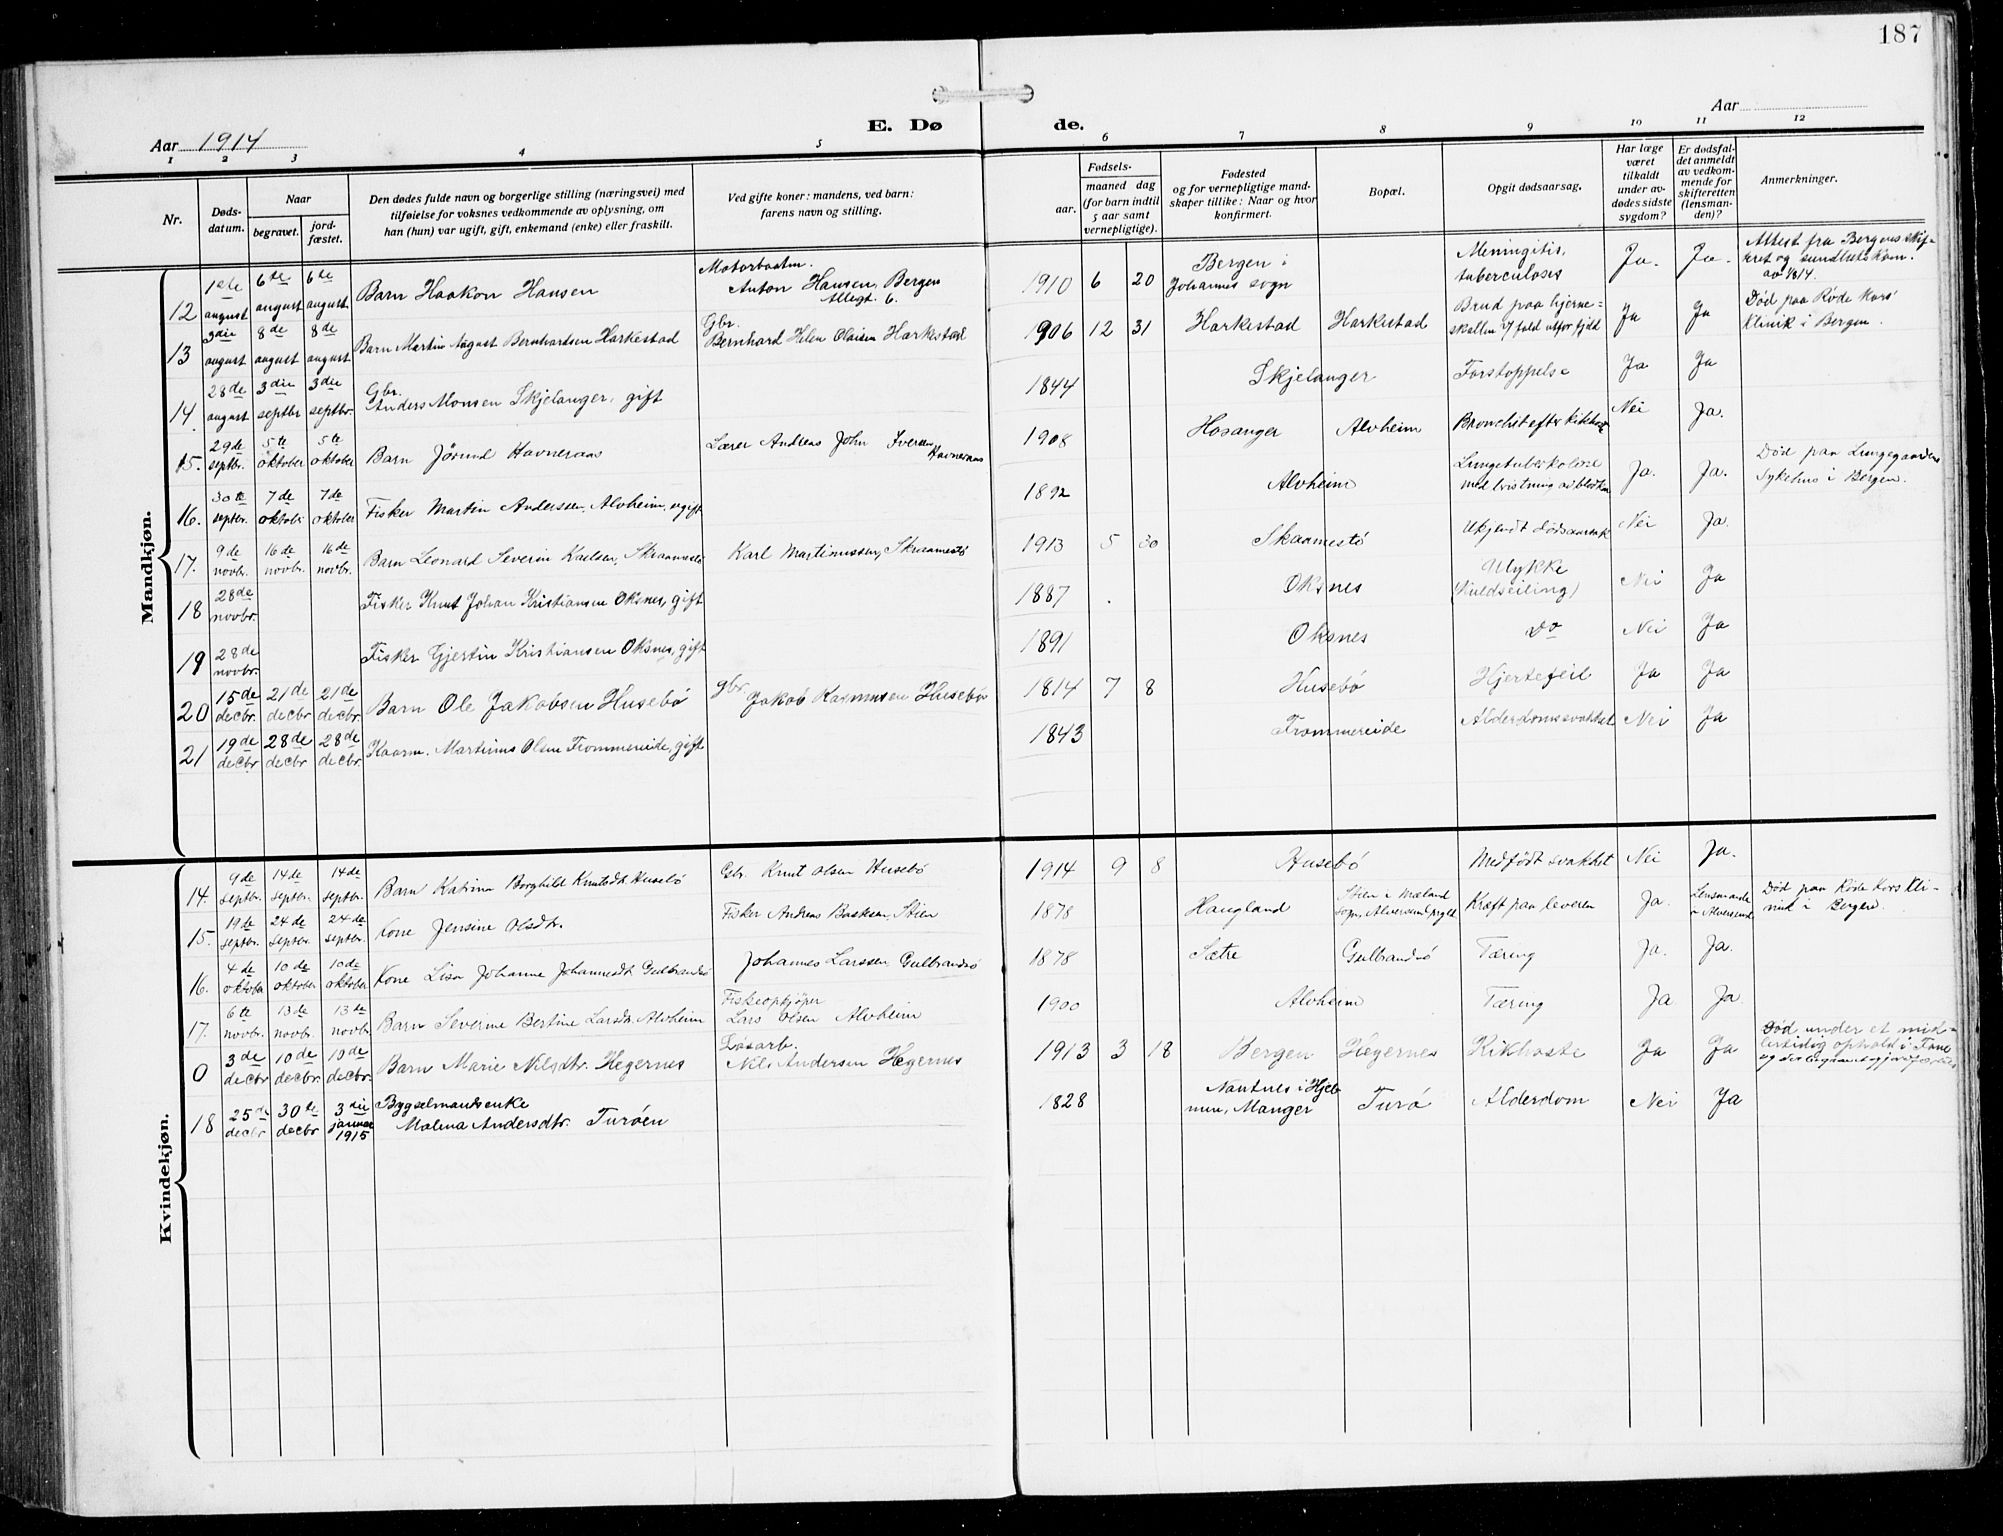 187
Aar 1914
E. Døde.
Aar
1 2 3 4 5 6 7 8 9 10 11 12
Nr.
Dødsdatum.
Naar
begravet.
jordfæstet.
Den dødes fulde navn og borgerlige stilling (næringsvei) med
tilføielse for voksnes vedkommende av oplysning, om
han (hun) var ugift, gift, enkemand (enke) eller fraskilt.
Ved gifte koner: mandens, ved barn:
farens navn og stilling.
Fødsels-
aar.
maaned dag
(for barn indtil
5 aar samt
vernepligtige).
Fødested
og for vernepligtige mand-
skaper tillike: Naar og hvor
konfirmert.
Bopæl.
Opgit dødsaarsag.
Har læge
været
tilkaldt
under av-
dødes sidste
sygdom?
Er dødsfal-
det anmeldt
av vedkom-
mende for
skifteretten
(lensman-
den)?
Anmerkninger.
Mandkjøn.
12 1ste august 6te august 6te august Barn Haakon Hansen Motorbaatm. Anton Hansen, Bergen 1910 6 20 Bergen i Johannes sogn Meningitis, tuberculoses Ja. Ja. Attest fra Bergens
13 3die august 8de august 8de august Barn Martin August Bernhardsen Harkestad Gbr. Bernhard Helen Olaisen Harkestad 1906 12 31 Harkestad Harkestad Brud paa hjerneskallen v/ fald utfor fjeld Ja Ja Død paa Røde Kors' Klinik i Bergen.
14. 28de august 3die septbr 3die septbr. Gbr. Anders Monsen Skjelanger, gift 1844 Skjelanger Forstoppelse Ja Ja
15. 29de septbr. 5te oktober 5te oktober Barn Jørund Havneraas Lærer Andreas John Iversen Havneraas 1908 Hosanger Alvheim Bronchit efter kikhoste Nei Ja.
16. 30te septbr. 7de oktobr 7de oktober Fisker Martin Anderssen, Alvheim, ugift 1892 Alvheim Lungetuberkolose med bristning av blodkar Ja. Ja. Død paa Lungegaardens Sykehus i Bergen.
17. 9de novbr. 16de novbr. 16de novbr. Barn Leonard Severin Karlsen, Skraamestø Karl Martinussen, Skraamestø 1913 5 30 Skaamestø Ukjendt dødsaarsak Nei Ja.
18 28de novbr. Fisker Knut Johan Kristiansen Oksnes, gift 1887 Oksnes Ulykke (Kuldseiling) Nei Ja
19 28de novbr. Fisker Gjertin Kristiansen Oksnes, gift 1891 Oksnes do Nei Ja
20 15de decbr. 21de decbr 21de decbr. Barn Ole Jakobsen Husebø gbr. Jakob Rasmusen Husebø 1814 7 8 Husebø Hjertefeil Ja Ja
21 19de decbr. 28de decbr 28de decbr. Kaarm. Martinus Olsen Trommereide, gift 1843 Trommereide Alderdomssvakhet Nei Ja
Kvindekjøn.
14. 9de septbr. 14de septbr. 14de septbr. Barn Katrina Borghild Knutsdt. Husebø Gbr. Knut Olsen Husebø 1914 9 8 Husebø Medfødt svakhet Nei Ja.
15. 19de septbr. 24de septbr. 24de septbr. Kone Jensine Olsdtr. Fisker Andreas Stien 1878 Haugland Stien i Mæland sogn, Alversund prgld Kræft paa leveren Ja. Lensmanden i Alversund Død paa Røde Kors Klinik i Bergen.
16. 4de oktober 10de oktober 10de oktober Kone Lisa Johanne Johannesdt Gulbrandsø Johannes Larssen Gulbrandsø 1878 Sætre Gulbrandsø Tæring Ja. Ja.
17. 6te novbr. 13de novbr. 13de novbr Barn Severine Bertine Larsdt. Alvheim Fiskeopkjøper Lars Olsen Alvheim 1900 Alvheim Tæring Ja Ja.
0 3de decbr 10de decbr 10de decbr. Barn Marie Nilsdtr. Hegernes Løsarb. Nils Andersen Hegernes 1913 3 18 Bergen Hegernes Kikhoste Ja Ja Død under et midlertidig ophold i Fane
18 25de decbr 30te decbr 3die januar 1915 Bygselmandsenke Malena Andersdtr. Turøen 1828 Nautnes i Hjelmen, Manger Turø Alderdom Nei Ja